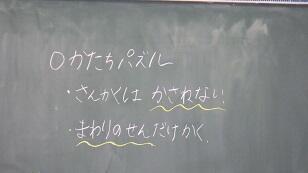 ○かたちパズル
・さんかくは かさねない
・まわりのせんだけかく。